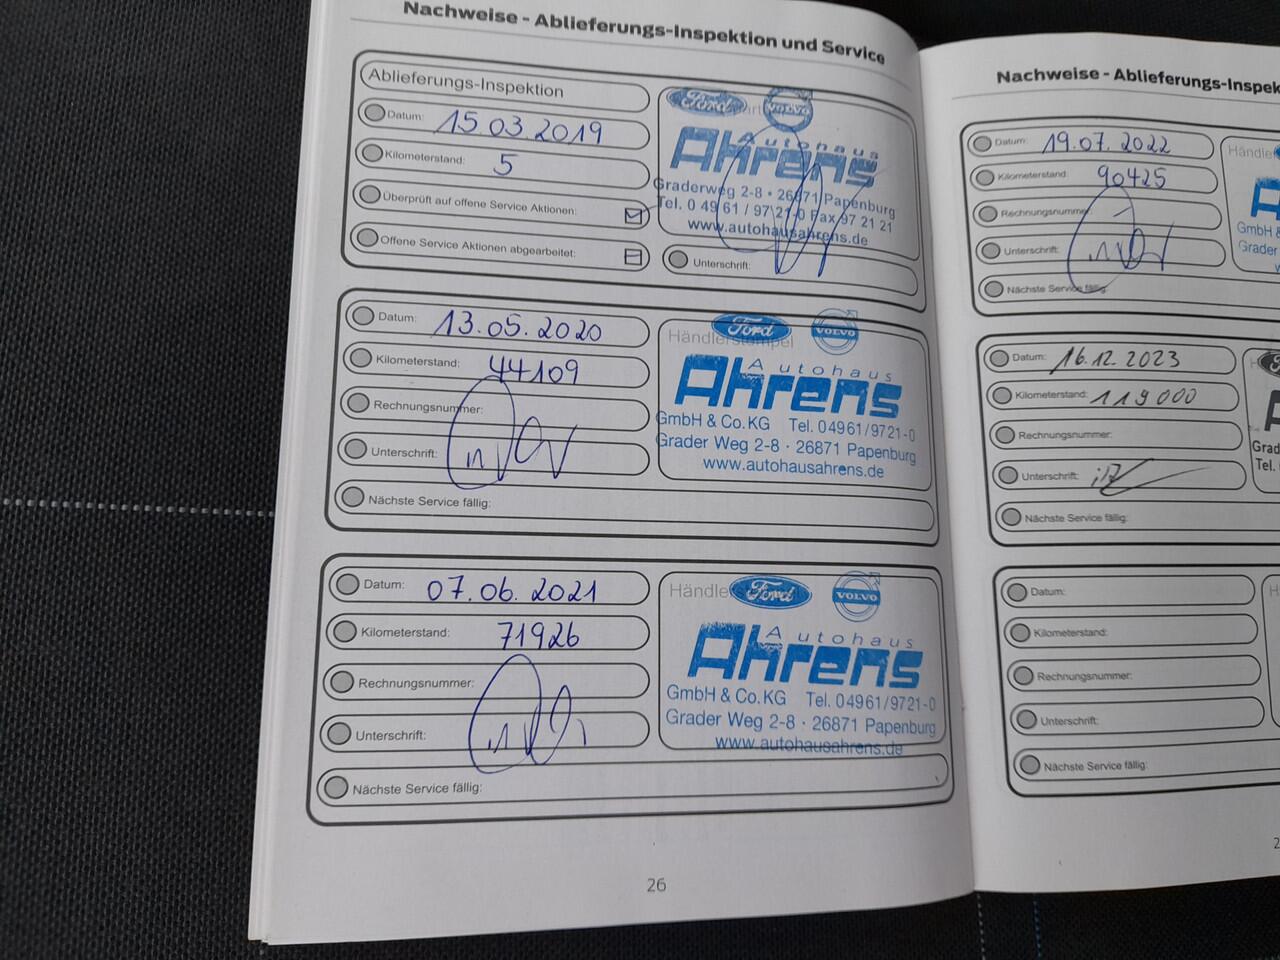 Nachweise - Ablieferungs-Inspektion und Service
Ablieferungs-Inspektion
Datum: 15 03 2019
Kilometerstand: 5
Überprüft auf offene Service Aktionen:
Offene Service Aktionen abgearbeitet:
Ford VOLVO
Autohaus
Ahrens
Graderweg 2-8 • 26871 Papenburg
Tel. 0 49 61 / 97 21-0 Fax 97 21 21
www.autohausahrens.de
Unterschrift:
Datum: 13.05.2020
Kilometerstand: 44109
Rechnungsnummer:
Unterschrift:
Nächste Service fällig:
Händlerstempel
Ford VOLVO
Autohaus
Ahrens
GmbH & Co.KG Tel. 04961/9721-0
Grader Weg 2-8 · 26871 Papenburg
www.autohausahrens.de
Datum: 07.06.2021
Kilometerstand: 71926
Rechnungsnummer:
Unterschrift:
Nächste Service fällig:
Händler
Ford VOLVO
Autohaus
Ahrens
GmbH & Co.KG Tel. 04961/9721-0
Grader Weg 2-8 · 26871 Papenburg
www.autohausahrens.de
26
Nachweise - Ablieferungs-Inspek
Datum: 19.07.2022
Kilometerstand: 90425
Rechnungsnummer:
Unterschrift:
Nächste Service fällig:
Händle
GmbH &
Grader
Datum: 16.12.2023
Kilometerstand: 119000
Rechnungsnummer:
Unterschrift:
Nächste Service fällig:
Grad
Tel.
Datum:
Kilometerstand:
Rechnungsnummer:
Unterschrift:
Nächste Service fällig: